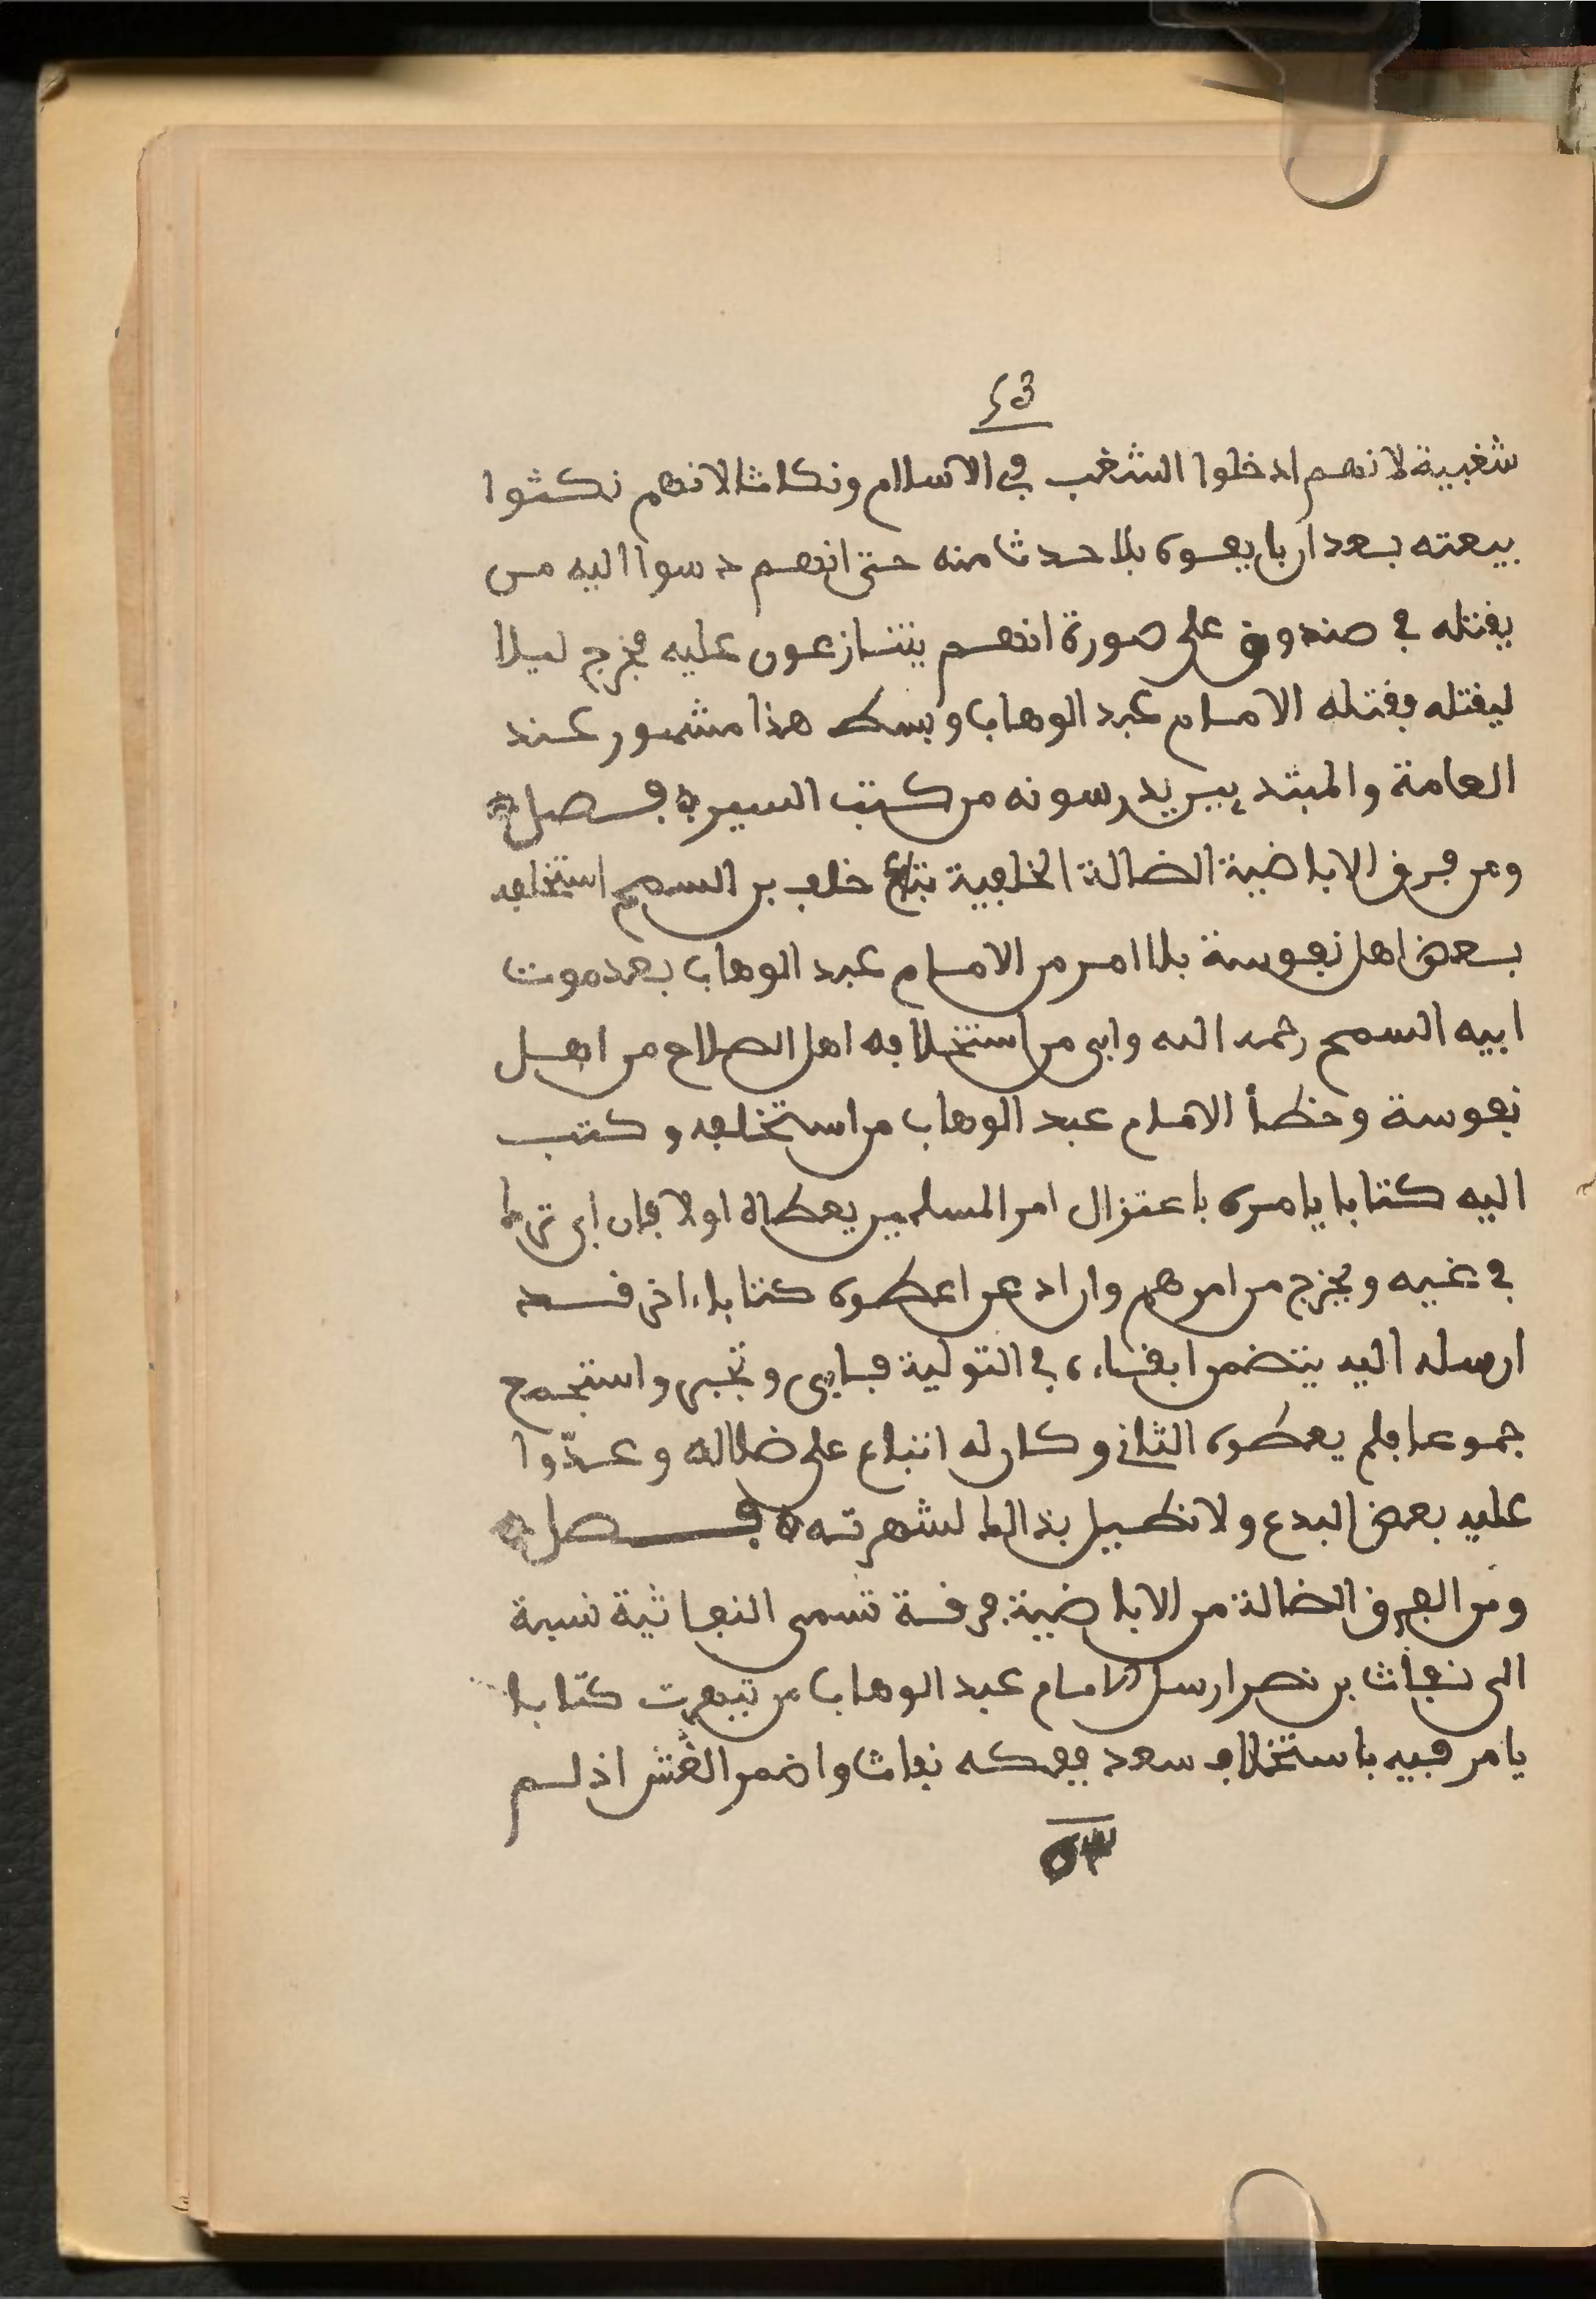 ٤٣
شغبية لانهم ادخلوا الشغب في الاسلام ونكاثا لانهم نكثوا
بيعته بعد ان بايعوه بلا حدث منه حتى انهم دسوا اليه من
يقتله في صندوق على صورة انهم يتنازعون عليه فخرج ليلا
ليقتله فقتله الامام عبد الوهاب وبسط هذا مشهور عند
العامة والمبتدءين يدرسونه من كتب السير ه فصل ه
ومن فرق الاباضية الضالة الخلفية تباع خلف بن السمح استخلفه
بعض اهل نفوسة بلا امر من الامام عبد الوهاب بعد موت
ابيه السمح رحمه الله وابى من استخلافه اهل الصلاح من اهل
نفوسة وخطأ الامام عبد الوهاب من استخلفه وكتب
اليه كتابا يامره باعتزال امر المسلمين يعطاه اولا فان ابى ترك
في غيه ويخرج من امرهم وان اذعن اعطوه كتابا ءاخر قد
ارسله اليه يتضمن ابقاءه في التولية فابى وتجبر واستجمع
جموعا فلم يعطوه الثاني وكان له اتباع على ضلاله وعدّوا
عليه بعض البدع ولا نطيل بذالك لشهرته ه فصل ه
ومن الفرق الضالة من الاباضية فرقة تسمى النفاثية نسبة
الى نفاث بن نصر ارسل الامام عبد الوهاب من تيهرت كتابا
يامر فيه باستخلاف سعد ففكه نفاث واضمر الغش اذ لم
٥٣